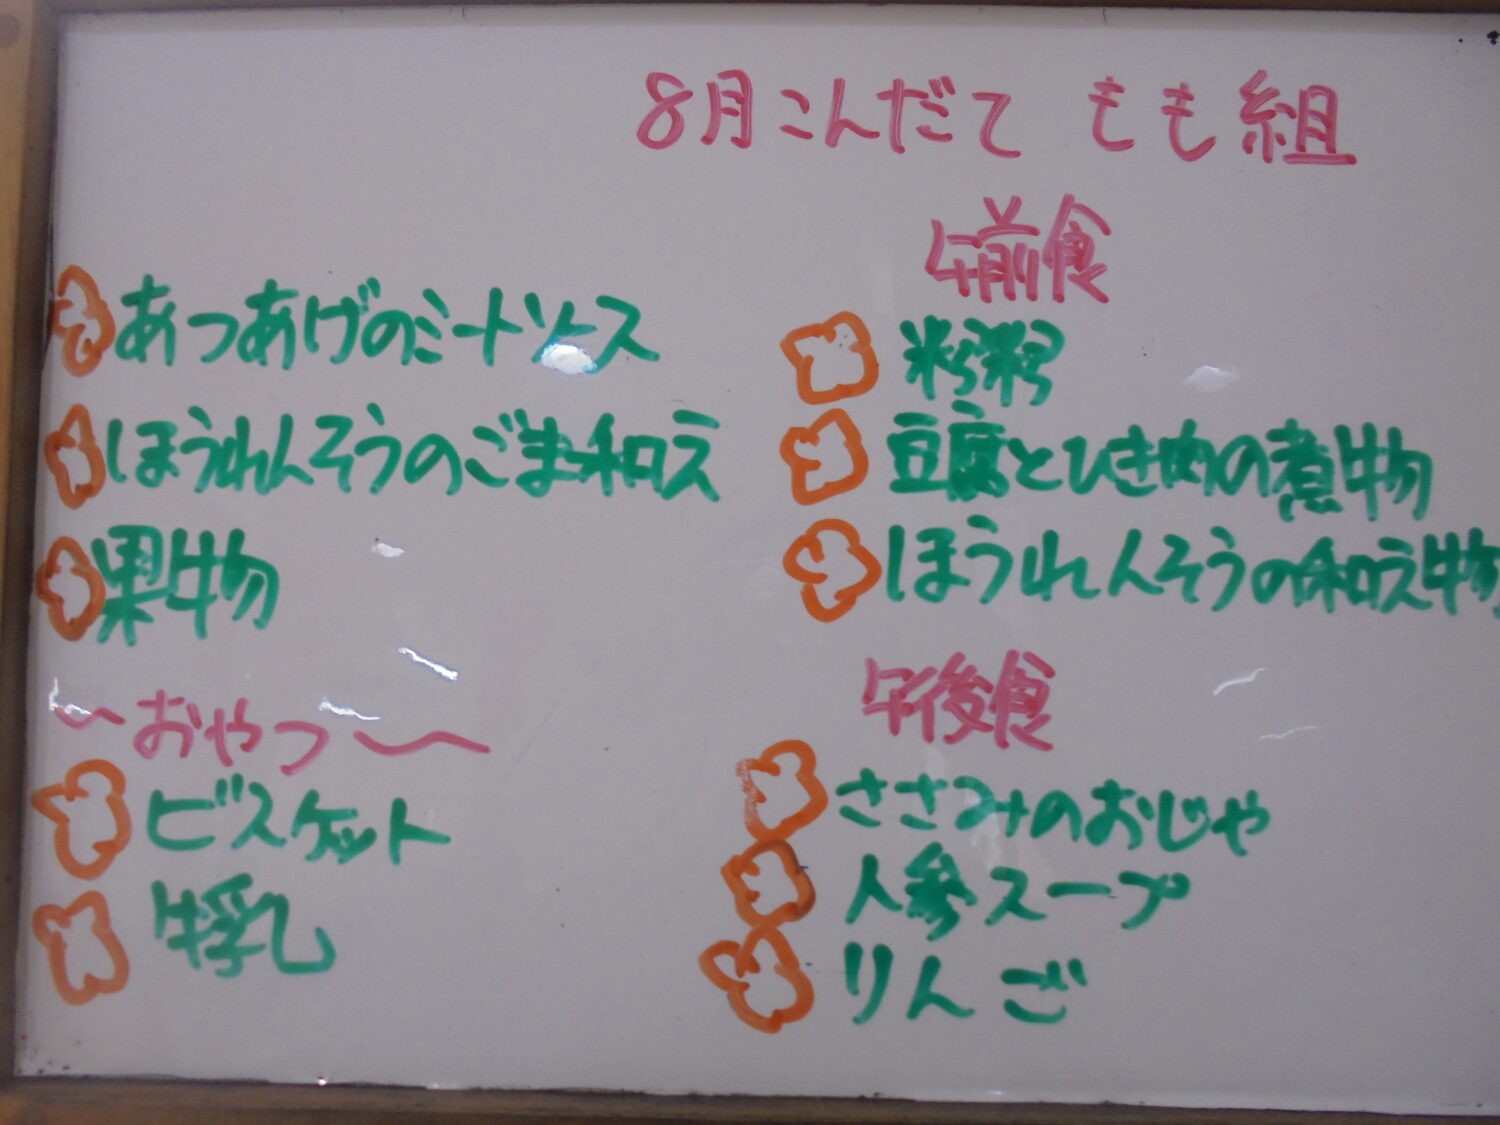 8月こんだて もも組
あつあげのミートソース
ほうれんそうのごま和え
果物
～おやつ～
ビスケット
牛乳
午前食
豆腐とひき肉の煮物
ほうれんそうの和え物
午後食
ささみのおじや
人参スープ
りんご